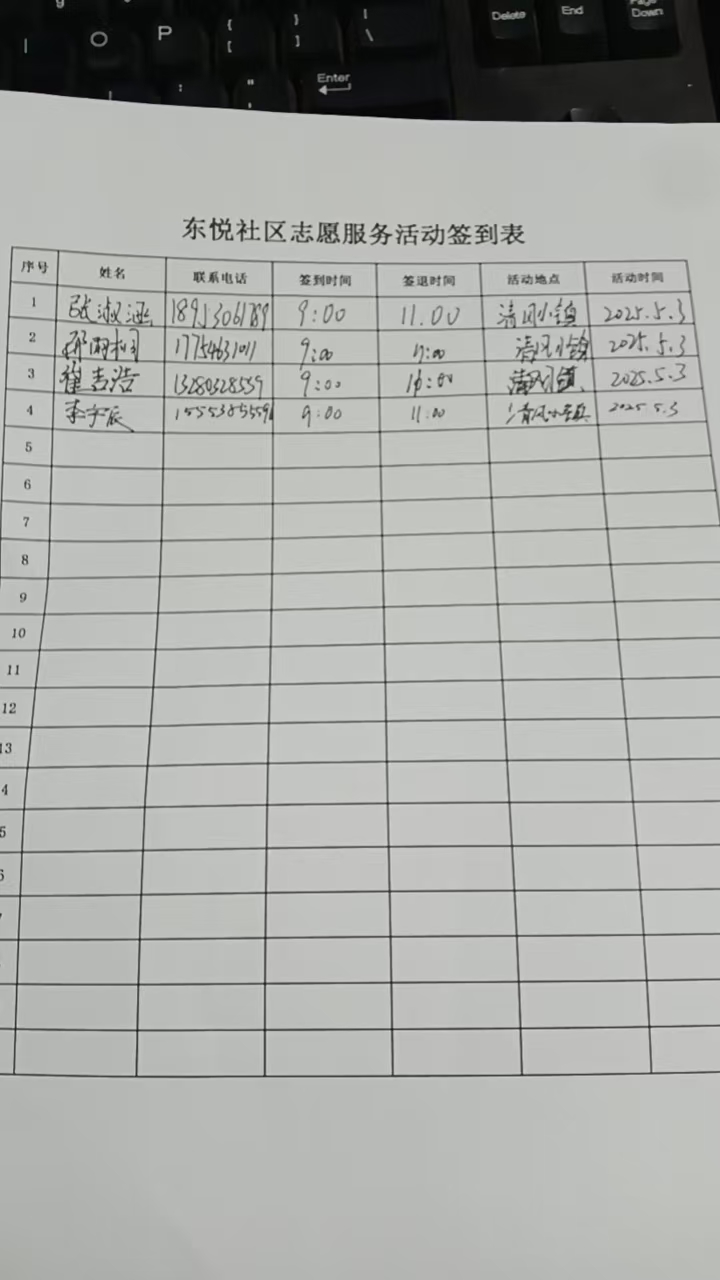 O
P
{
[
}
]
|
\
Delete
End
Page
Down
Enter
东悦社区志愿服务活动签到表
序号 姓名 联系电话 签到时间 签退时间 活动地点 活动时间
1 张淑涵 9:00 11.00 清风小镇 2025.5.3
2 17754631011 9:00 11:00 清风小镇 2025.5.3
3 崔吉浩 13280328559 9:00 清风小镇 2025.5.3
4 李宇辰 9:00 11:00 清风小镇 2025.5.3
5
6
7
8
9
10
11
12
13
4
5